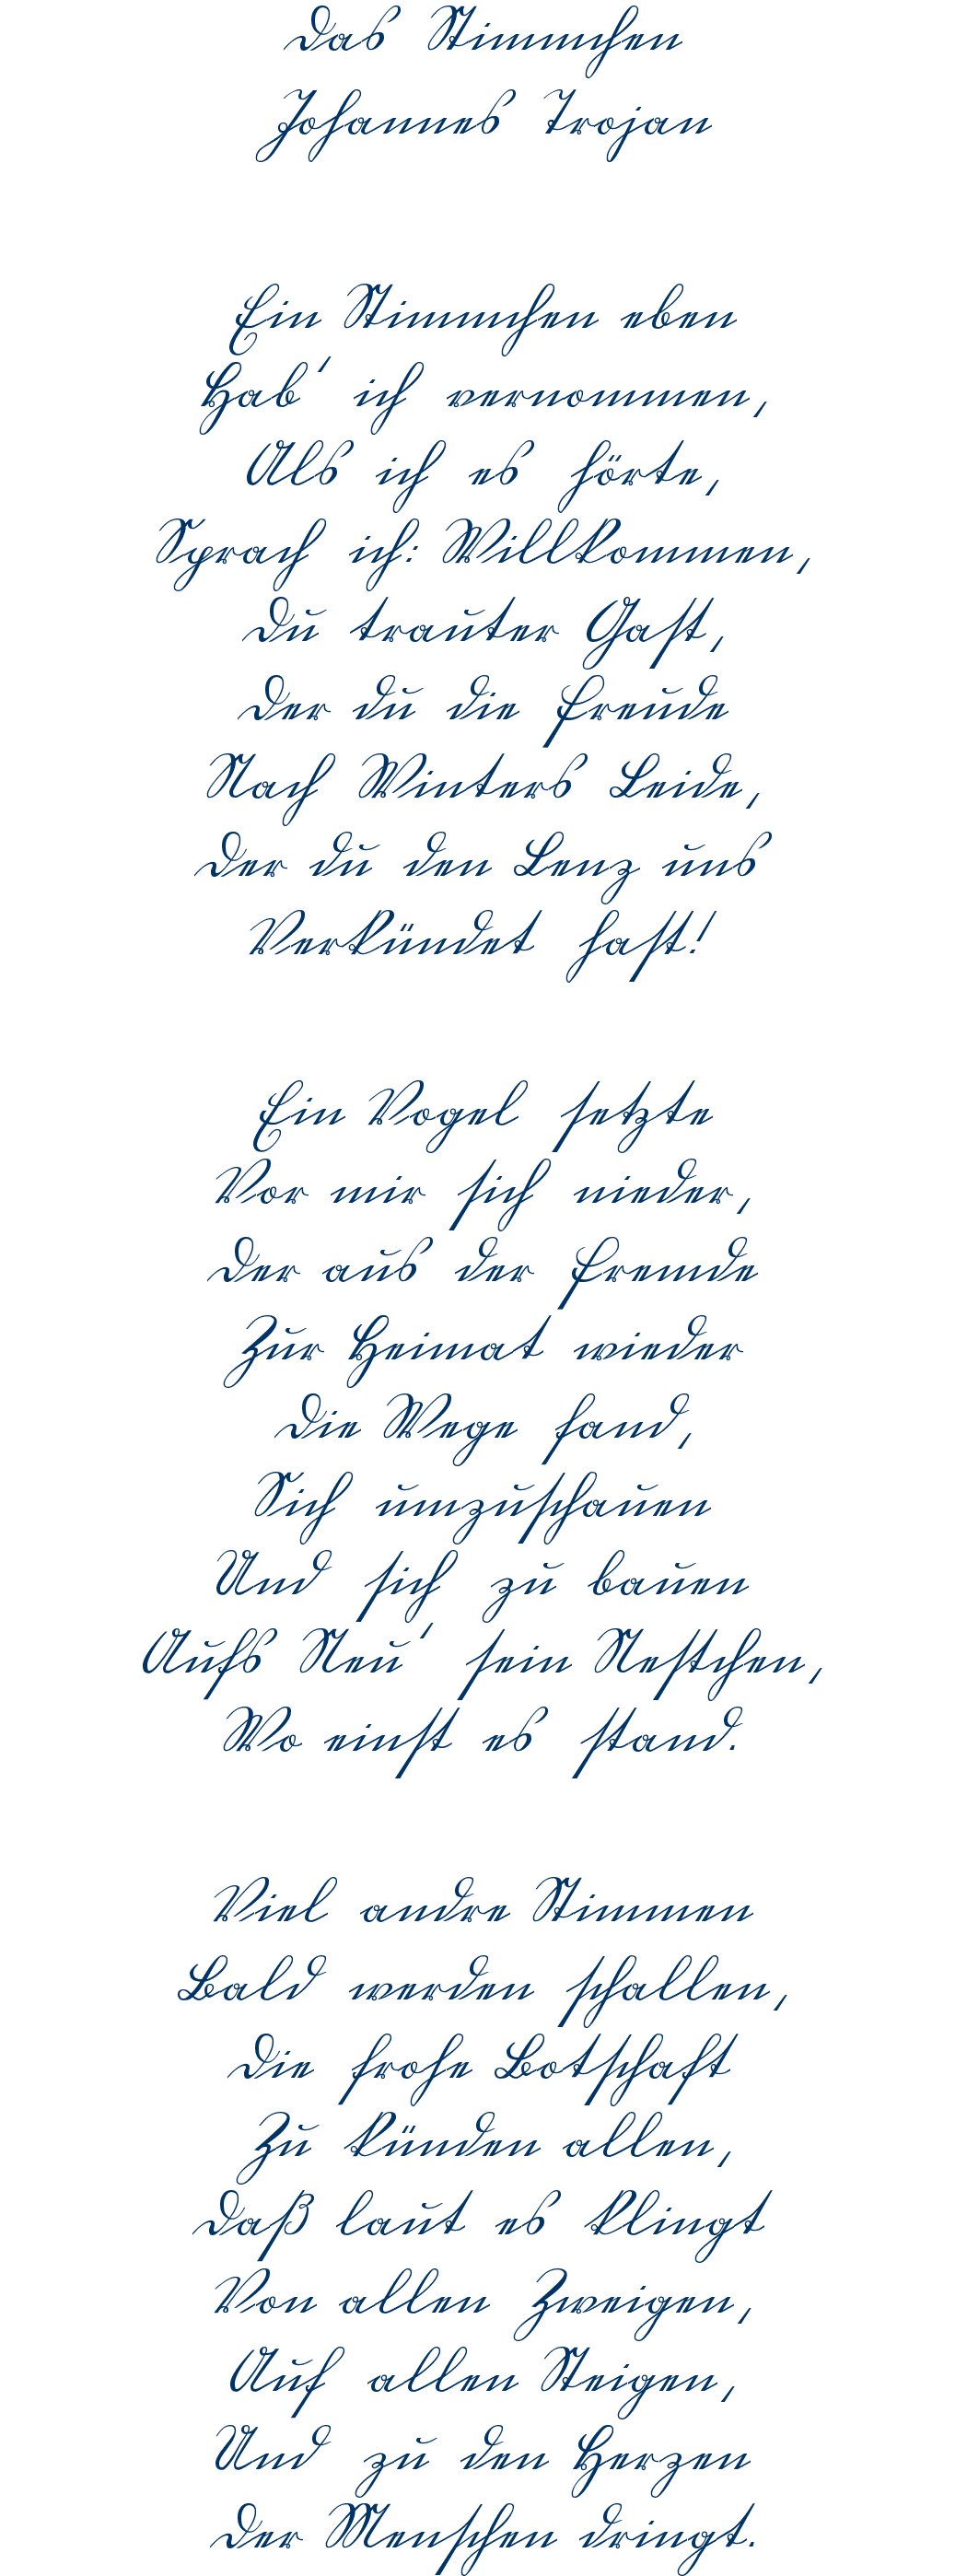 Das Stimmchen
Johannes Trojan
Ein Stimmchen eben
Hab' ich vernommen,
Als ich es hörte,
Sprach ich: Willkommen,
Du trauter Gast,
Der du die Freude
Nach Winters Leide,
Der du den Lenz uns
Verkündet hast!
Ein Vogel setzte
Vor mir sich nieder,
Der aus der Fremde
Zur Heimat wieder
Die Wege fand,
Sich umzuschauen
Und sich zu bauen
Aufs Neu' sein Nestchen,
Wo einst es stand.
Viel andre Stimmen
Bald werden schallen,
Die frohe Botschaft
Zu künden allen,
Daß laut es klingt
Von allen Zweigen,
Auf allen Steigen,
Und zu den Herzen
Der Menschen dringt.